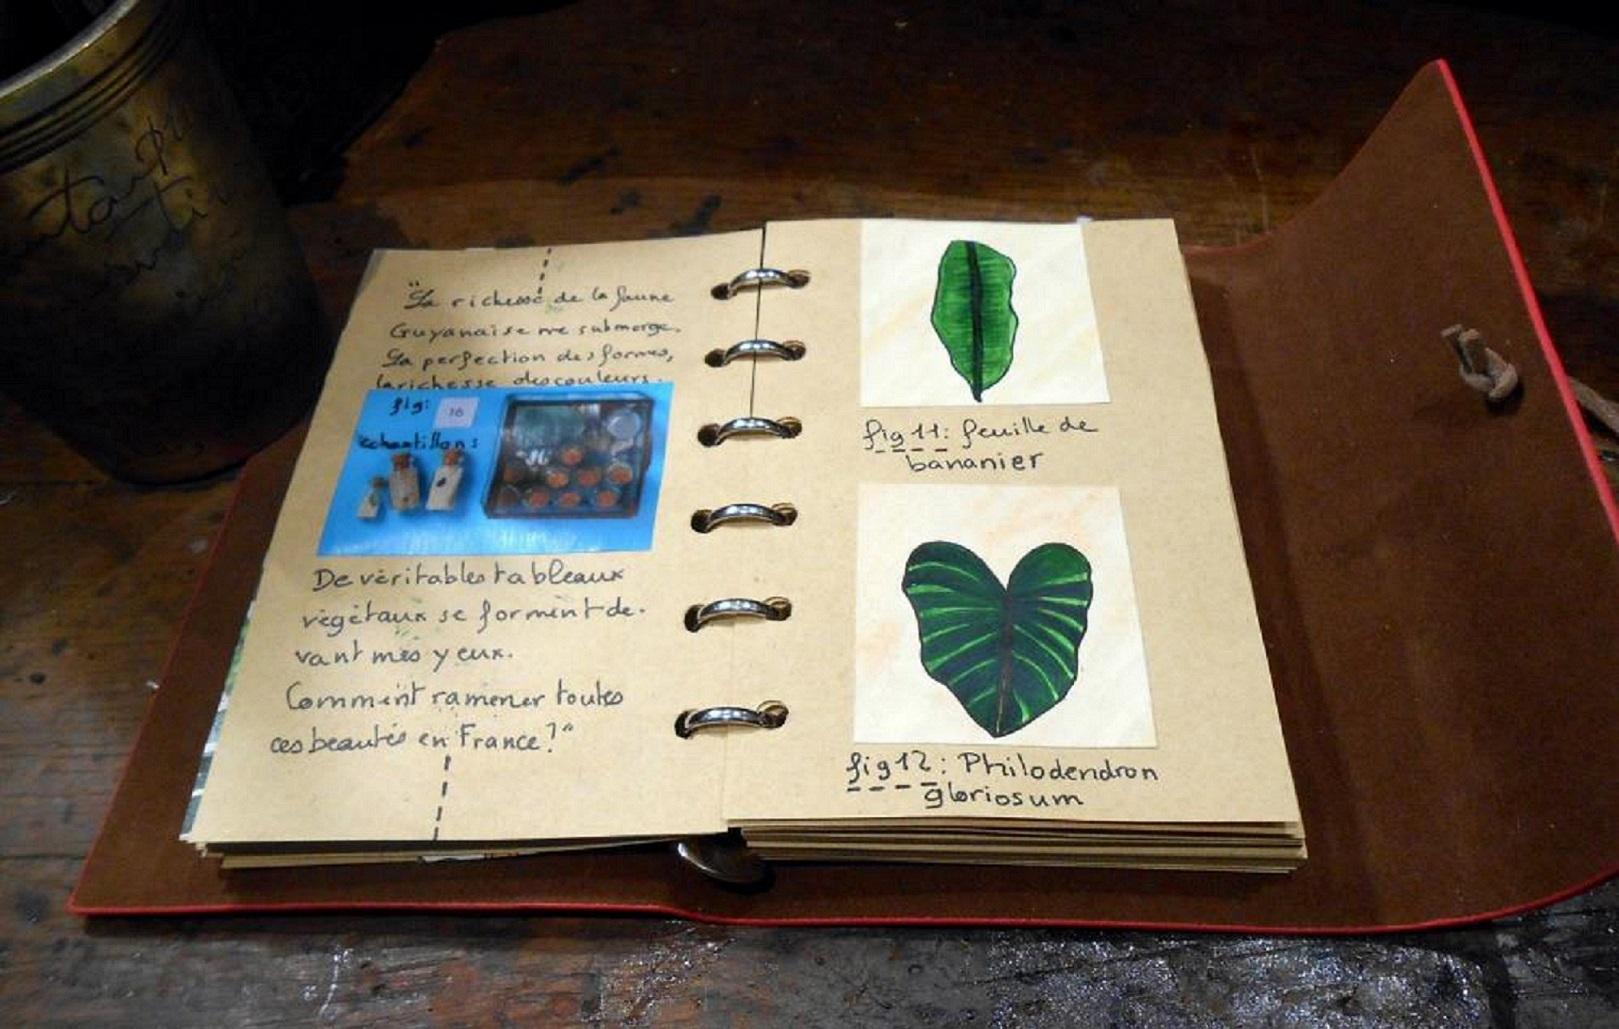 "La richesse de la faune
Guyanaise me submerge.
La perfection des formes,
la richesse des couleurs.
fig: 16
échantillons
De véritables tableaux
végétaux se forment de-
vant mes yeux.
Comment ramener toutes
ces beautés en France?"
fig 11: feuille de
bananier
fig 12: Philodendron
gloriosum